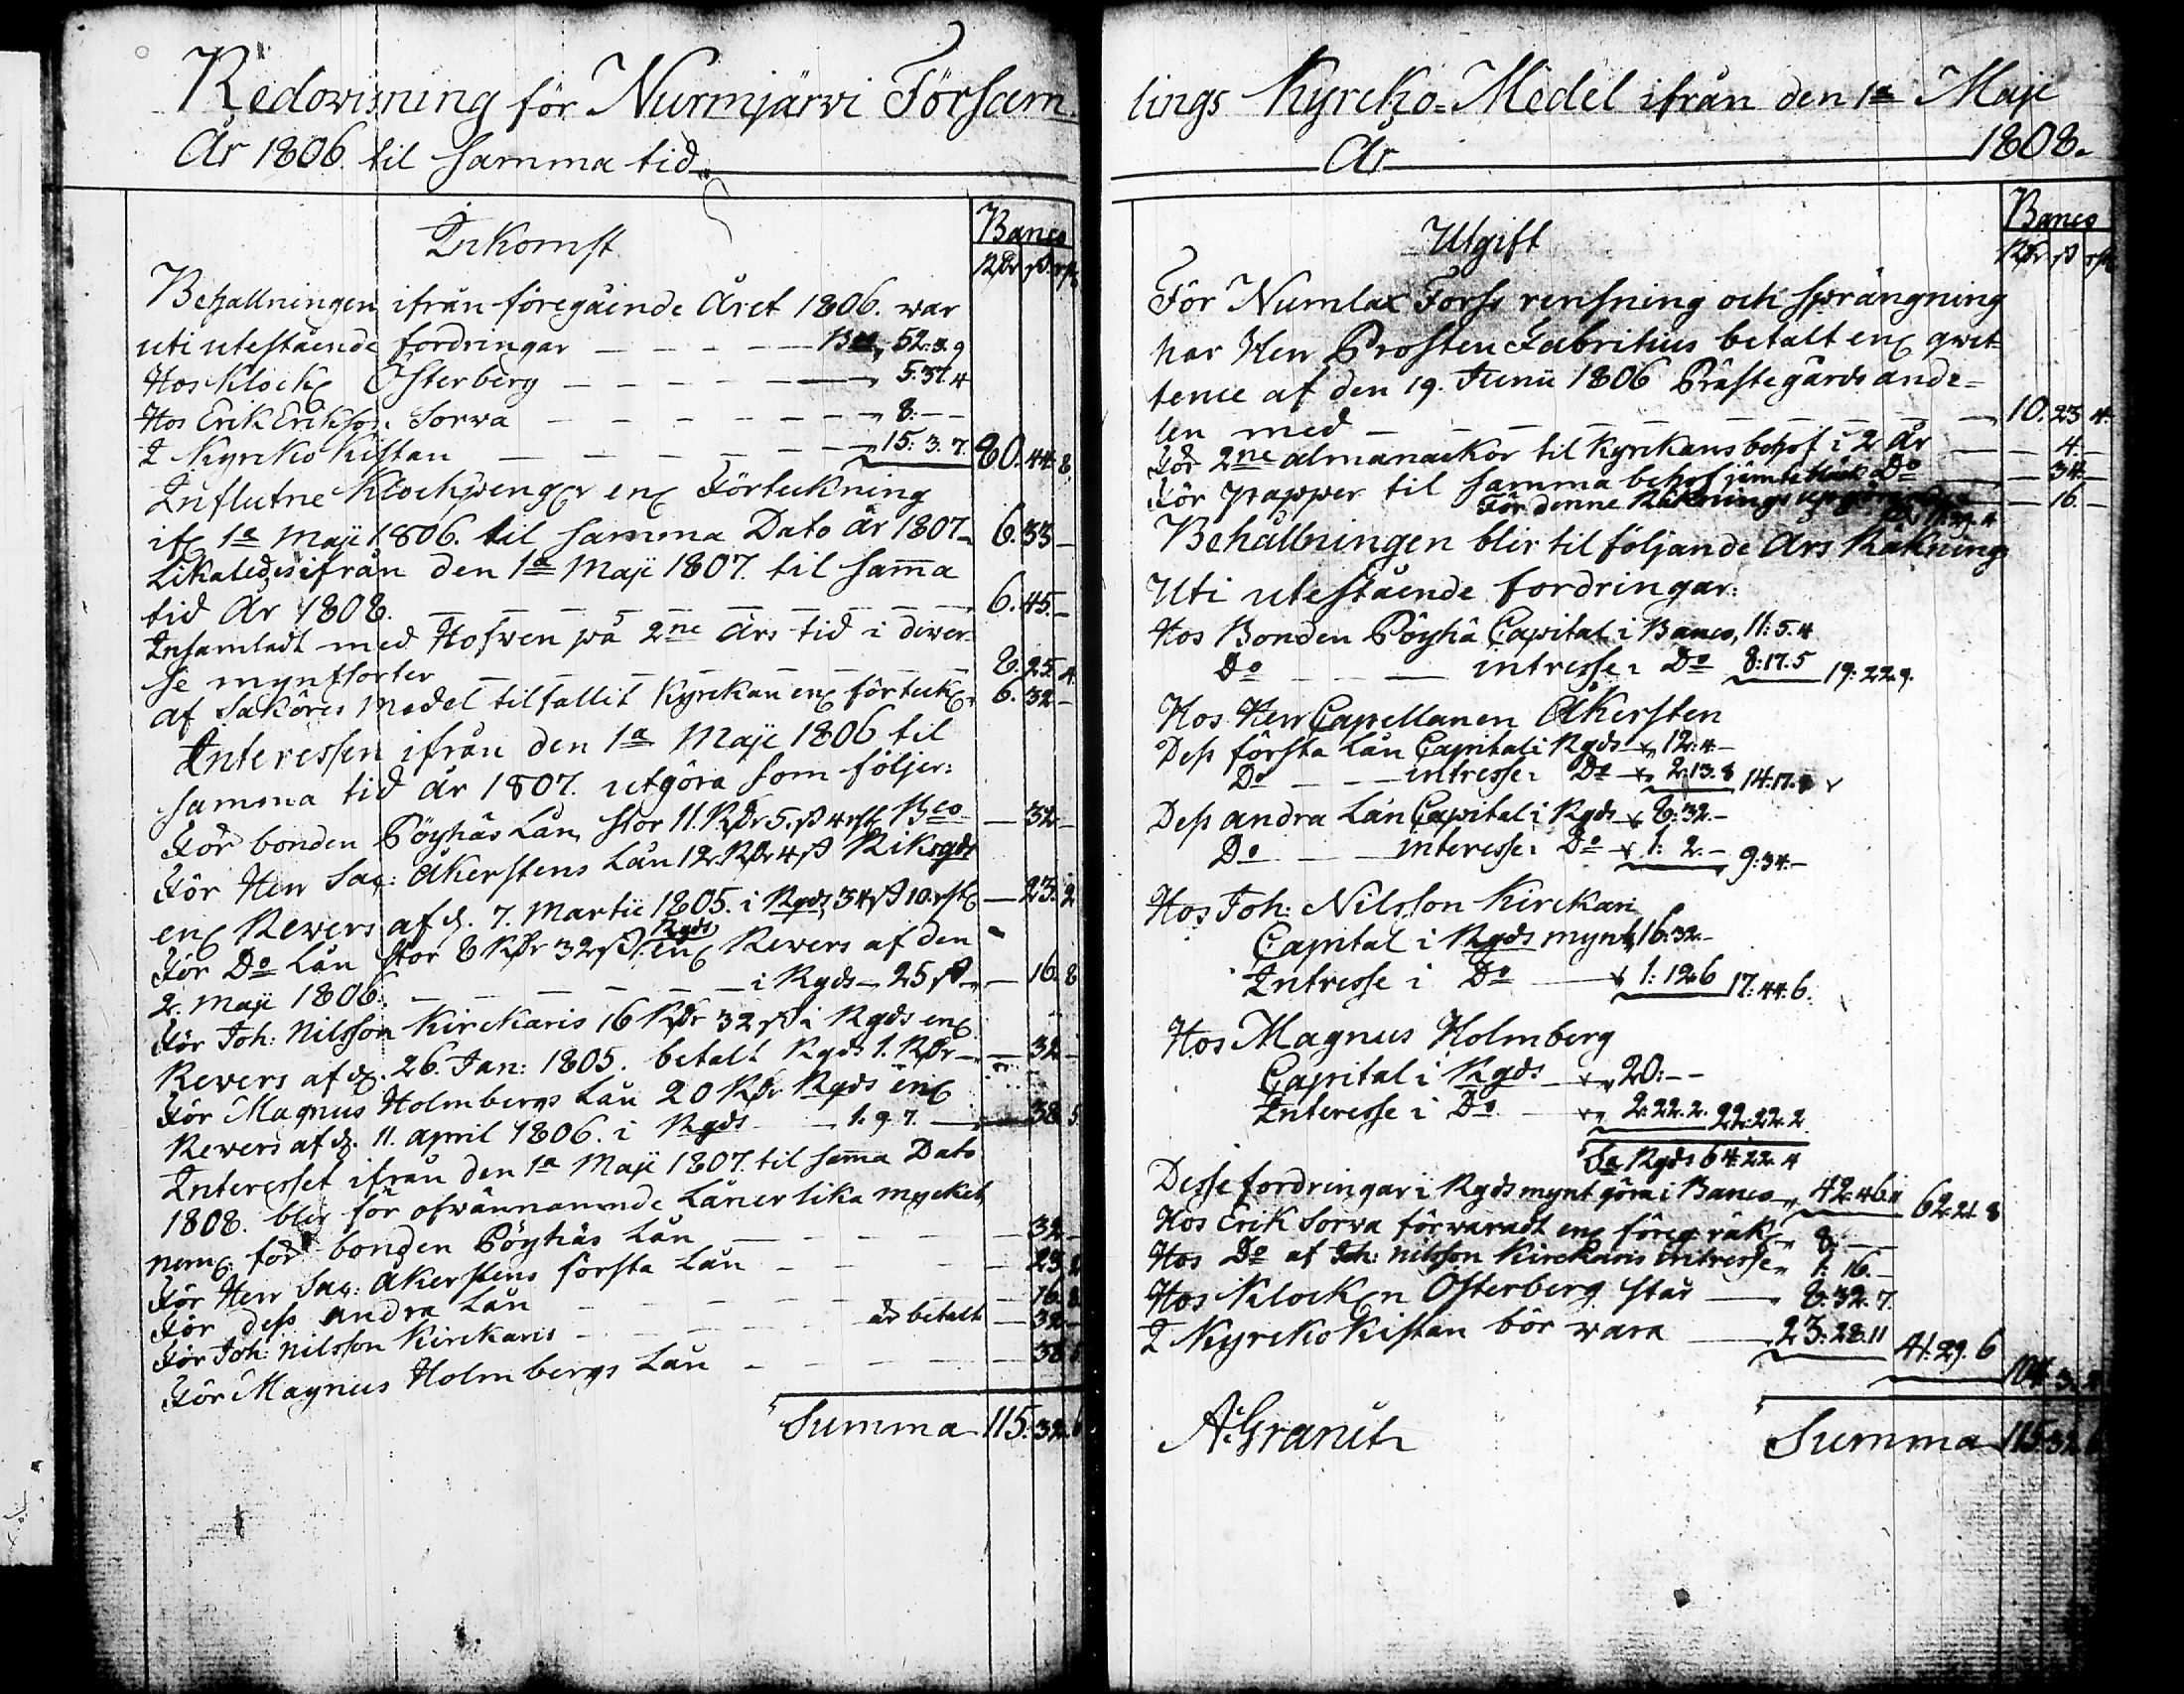 Redovisning för Nurmijärvi Försam
År 1806. til samma tid
Inkomst
Banco
RDr ß rst
Behallningen ifrån föregående Året 1806. war
uti utestående fordringar — — — — — Bco 52.3.9
Hos Klock. Österberg — — — — — — 5.37.4
Hos Erik Eriksson Sorva — — — — — — 8:— —
I Kyrko Kistan — — — — — — 15: 3. 7. 80.44.8
Influtne Klockpengar enl Förteckning
ifr 1a Maji 1806. til samma Dato år 1807. 6.33 —
Likaledes ifrån den 1a Maji 1807. til sama
tid År 1808. — — — — — — 6.45.—
Insamladt med Hofwen på 2ne Års tid i diver-
se myntsorter — — — — — — 8.25.4
af Saköres Medel tilfallit Kyrckan enl förteck. 6.32 —
Interessen ifrån den 1a Maji 1806 til
samma tid år 1807. utgöra som följer:
För bonden Pöyhäs Lån, stor 11. RDr 5. ß 4 rst Bco — 32 —
För Herr Sac: Åkerstens Lån 12. RDr 4 ß Riksgds
enl Revers af d. 7. Martii 1805. i Rgds 34 ß 10. rst — 23. 2
För Do Lån stor 8 RDr 32 ß Rgds enl Revers af den
2. Maji 1806. — — — — — i Rgds — 25 ß — 16. 8
För Joh: Nilsson Kirckaris 16 RDr 32 ß i Rgds enl
Revers af d. 26. Jan: 1805. betalt Rgds 1. RDr — — 32 —
För Magnus Holmbergs Lån 20 RDr Rgds enl
Revers af d. 11. april 1806. i Rgds — 1. 9. 7. — 38. 5
Interesset ifrån den 1a Maji 1807. til sama Dato
1808. blir för ofvannämnde Låner lika mycket,
neml. för bonden Pöyhäs Lån — — — — 32 —
För Herr Sac: Åkerstens första Lån — — — 23. 2
För dess andra Lån — — — — — 16. 8
För Joh: Nilsson Kirckaris — — — är betalt — 32 —
För Magnus Holmbergs Lån — — — — 38. 5
Summa 115: 32. 6
lings Kyrcko-Medel ifrån den 1a Maji
År 1808.
Utgift
Banco
RDr ß rst
För Numlax Forss rensning och sprängning
har Herr Prosten Fabritius betalt enl qwit-
tence af den 19. Junii 1806 Prästegårds ande-
len med — — — — — — 10. 23. 4.
För 2ne almanackor til Kyrkans behof i 2 år — — 4. —
För papper til samma behof jämte Do — 34. —
För denne Räknings — 16. —
Behållningen blir til följande Års Räkning
Uti utestående fordringar:
Hos Bonden Pöyhä Capital i Banco, 11: 5. 4
Do — — intresse i Do 8: 17. 5 19: 22. 9.
Hos Herr Capellanen Åkersten
Dess första Lån Capital i Rgds 12: 4 —
Do — — intresse i Do 2. 13. 8 14. 17. 8
Dess andra Lån Capital i Rgds 8: 32. —
Do — — interesse i Do 1: 2. — 9: 34. —
Hos Joh: Nilsson Kirckari
Capital i Rgds mynt 16: 32 —
Intresse i Do — 1: 12. 6 17: 44. 6.
Hos Magnus Holmberg
Capital i Rgds — 20: — —
Interesse i Do — 2. 22. 2. 22: 22. 2.
Sa Rgds 64: 22. 4
Desse fordringar i Rgds mynt göra i Banco 42: 46. 11 62: 21. 8
Hos Erik Sorva förvaradt enl föreg räk. 8: — —
Hos Do af Joh: Nilsson Kirckaris intresse 1: 16. —
Hos Klocken Österberg står — 8: 32. 7.
I Kyrcko Kistan bör vara — 23: 28. 11 41: 29. 6
104. 3. 2
A: Granith
Summa 115. 32. 6